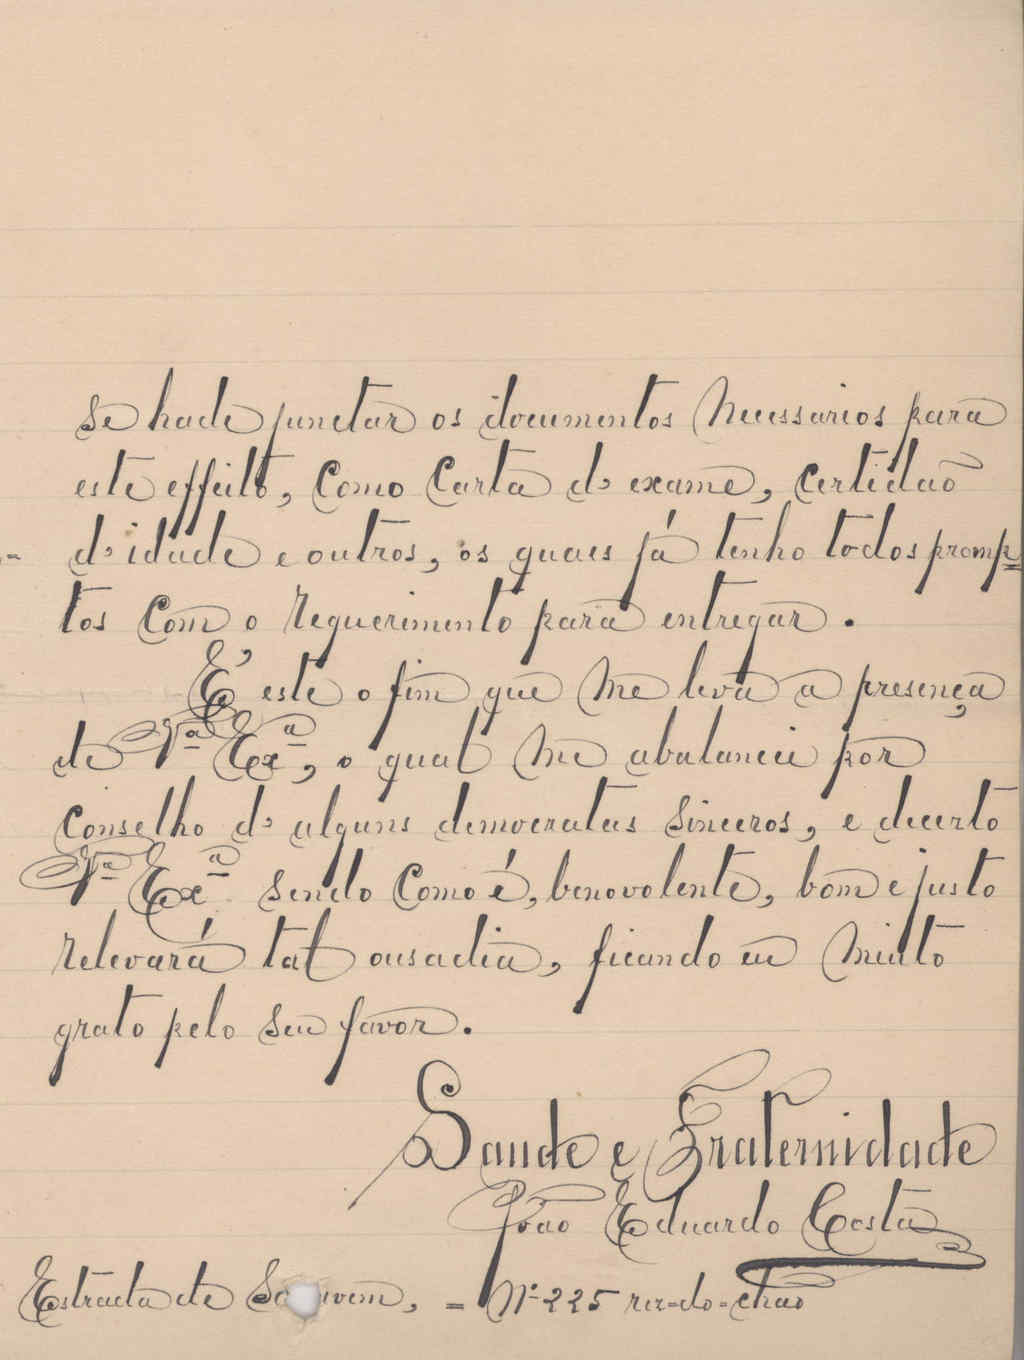 se hade junctar os documentos necessarios para
este effeito, como carta de exame, certidão
de idade e outros, os quaes já tenho todos promp=
tos com o requerimento para entregar.
É este o fim que me leva a presença
de V.ª Ex.ª, o qual me abalancei por
conselho de alguns democratas sinceros, e decerto
V.ª Ex.ª sendo como é, benovolente, bom e justo
relevará tal ousadia, ficando eu muito
grato pelo seu favor.
Saude e Fraternidade
João Eduardo Costa
Estrada de = Nº 225 rez=do=chão